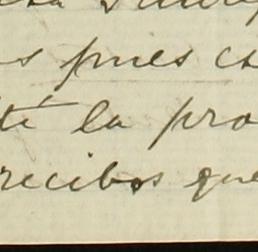 s pues es
té la pro
recibos que